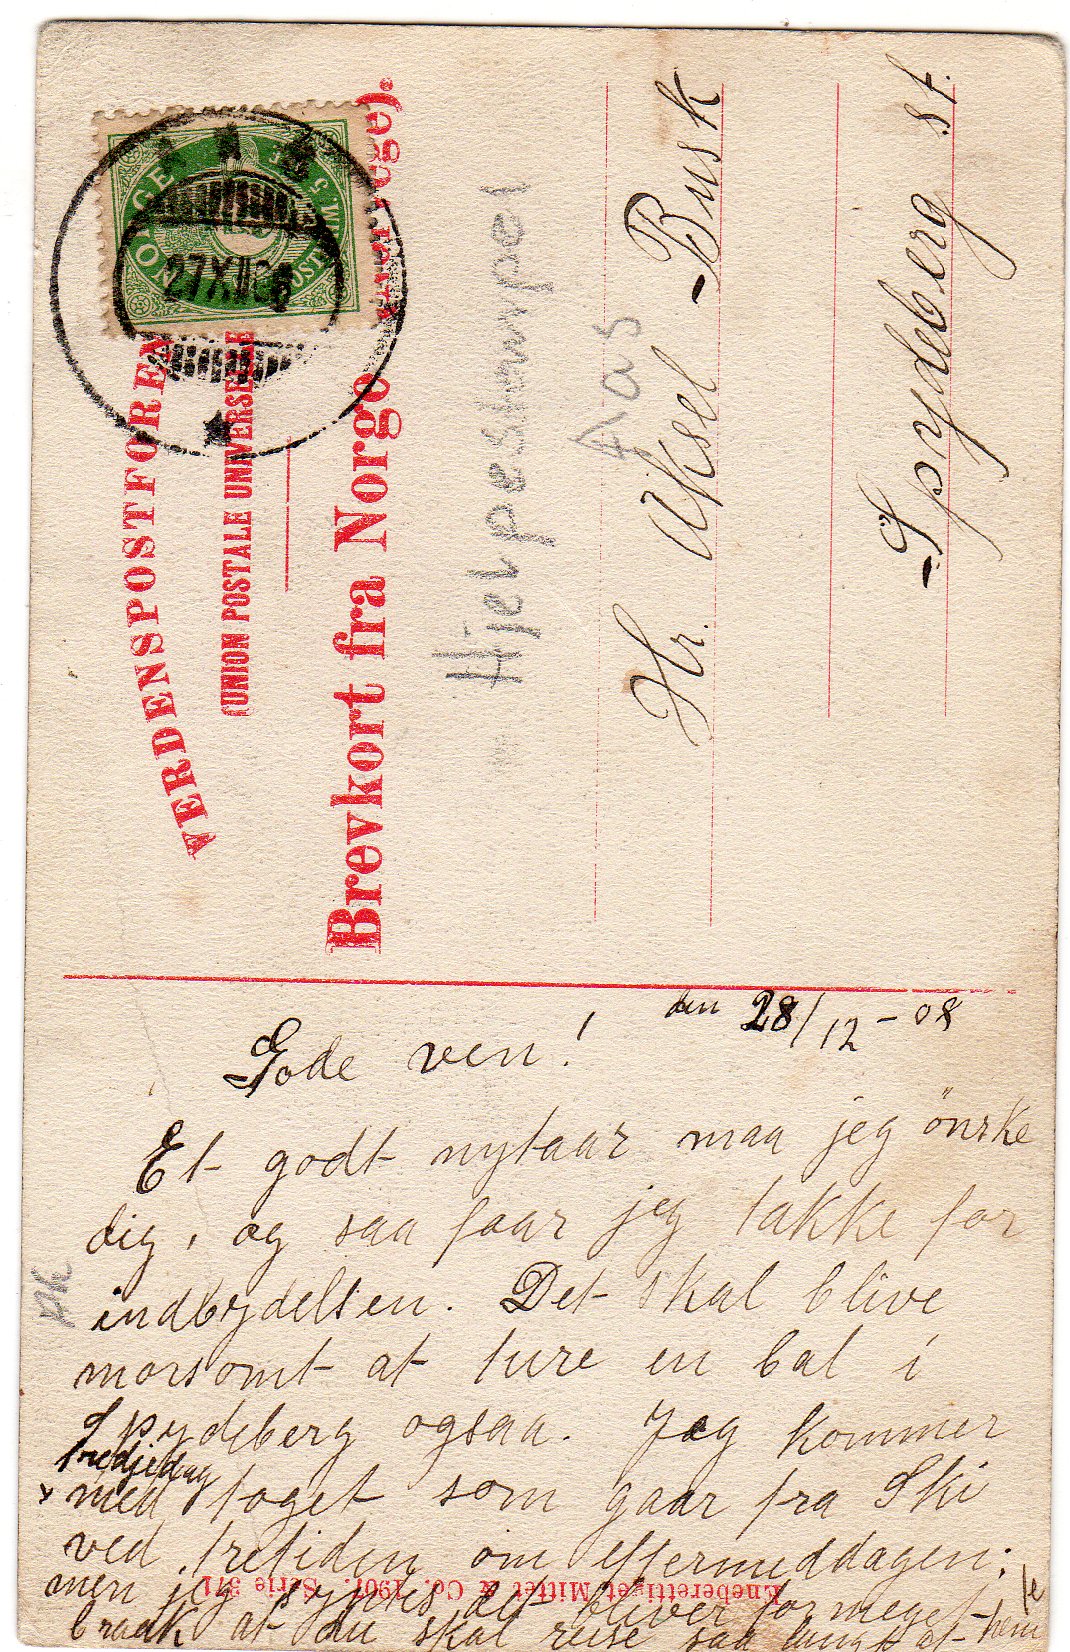 VERDENSPOSTFOREN
(UNION POSTALE UNIVERSELLE
Brevkort fra Norge
NORGE
27 XII 08
Hjelpestempel
Aas
Hr. Aksel Busk
Spydeberg st.
den 28/12 - 08
Gode ven!
Et godt nytaar maa jeg önske
dig, og saa faar jeg takke for
indbydelsen. Det skal blive
morsomt at ture en bal i
Spydeberg ogsaa. Jeg kommer
tredjedag
med toget som gaar fra Ski
ved tretiden om eftermiddagen.
Eneberettiget Mittet & Co. 1907. Serie 371
men jeg synes det bliver for meget
braak at du skal reise saa langt at